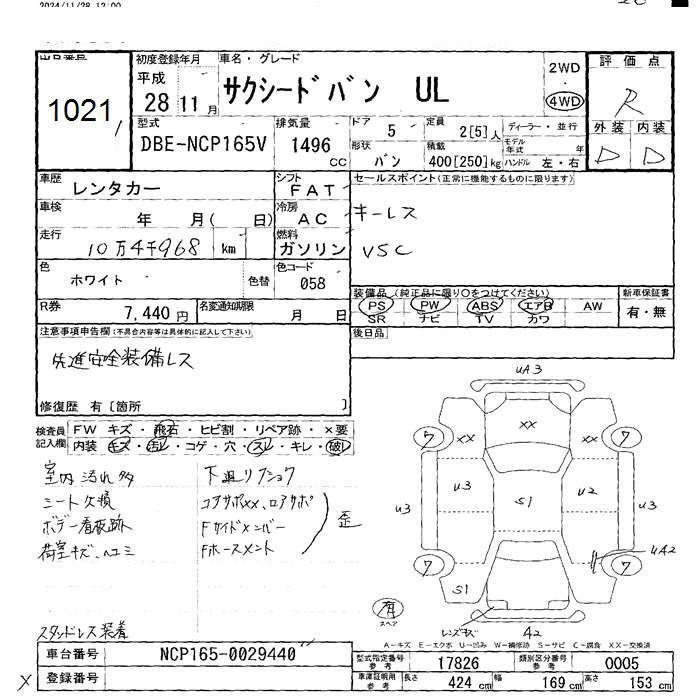 2024/11/28 12:00
出品番号
1021
初度登録年月
平成
28 11 月
車名・グレード
サクシードバン UL
2WD
・
4WD
評価点
R
外装 内装
D D
型式
DBE-NCP165V
排気量
1496 CC
ドア 5
形状 バン
定員 2[5]人
積載 400[250]kg
ディーラー・並行
モデル年式 年
ハンドル 左・右
車歴
レンタカー
シフト
FAT
セールスポイント(正常に機能するものに限ります)
キーレス
VSC
車検
年 月( 日)
冷房
AC
走行
10万4千968 km
燃料
ガソリン
色
ホワイト
色替
色コード
058
装備品(純正品に限り○をつけてください)
PS PW ABS エアB AW
SR ナビ TV カワ
新車保証書
有・無
R券
7,440 円
名変通知期限
月 日
後日品
注意事項申告欄(不具合内容等は具体的に記入して下さい)
先進安全装備レス
修復歴 有 [箇所 ]
検査員記入欄
FW キズ・飛石・ヒビ割・リペア跡・×要
内装 キズ・汚レ・コゲ・穴・スレ・キレ・破レ
室内汚れ多
シート欠損
ボデー看板跡
荷室キズ、ヘコミ
下廻りブショク
コアサポXX、ロアサポ
Fサイドメンバー
Fホースメント
歪
スタッドレス装着
UA3
7 XX XX 7
U3 U3 S1 U2 U3
7 S1 7 UA2
有
スペア
レンズキズ A2
A-キズ E-エクボ U-凹み W-補修跡 S-サビ C-腐食 XX-交換済
車台番号
NCP165-0029440
登録番号
X
型式指定番号 参考 17826
類別区分番号 参考 0005
車庫証明用 参考 長さ 424 cm 幅 169 cm 高さ 153 cm